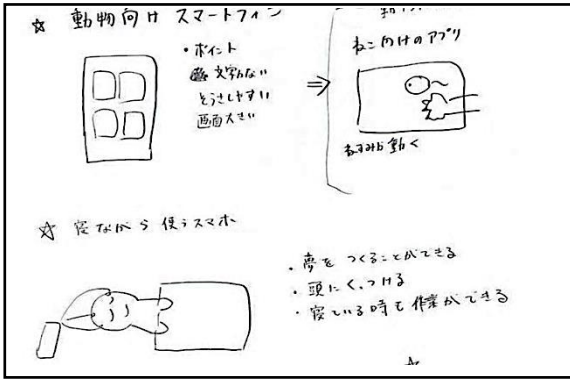 ☆ 動物向け スマートフォン
・ポイント
文字がない
そうさしやすい
画面大きい
⇒
ねこ向けのアプリ
ねずみが動く
☆ 寝ながら使うスマホ
・夢をつくることができる
・頭にくっつける
・寝ている時も作業ができる